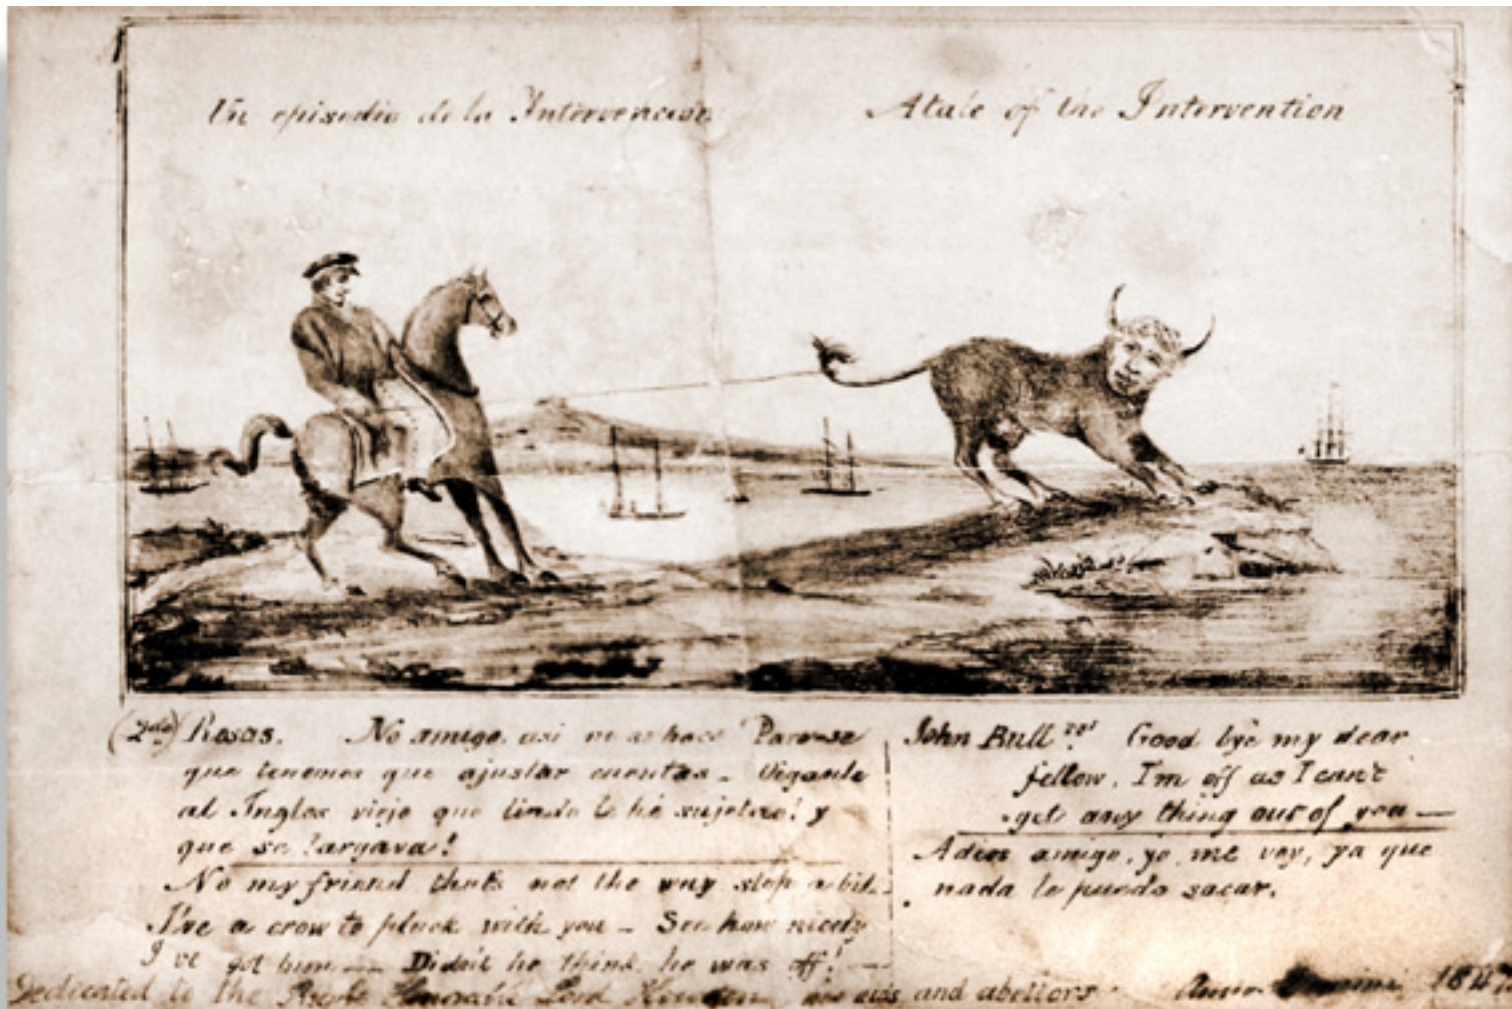 Un episodio de la Intervencion
A tale of the Intervention
(2do) Rosas. No amigo, asi no se hace Parese
que tenemos que ajustar cuentas - Vigante
al Ingles viejo que lindo lo hé sujetao! y
que se largava!
No my friend that's not the way stop a bit.
I've a crow to pluck with you - See how nicely
I've got him — Didn't he think he was off! —
John Bull Good bye my dear
fellow, I'm off as I can't
get any thing out of you —
Adios amigo, yo me voy, ya que
nada le puedo sacar.
Dedicated to the Right Honorable Lord Howden and abettors Anno Domini 1847